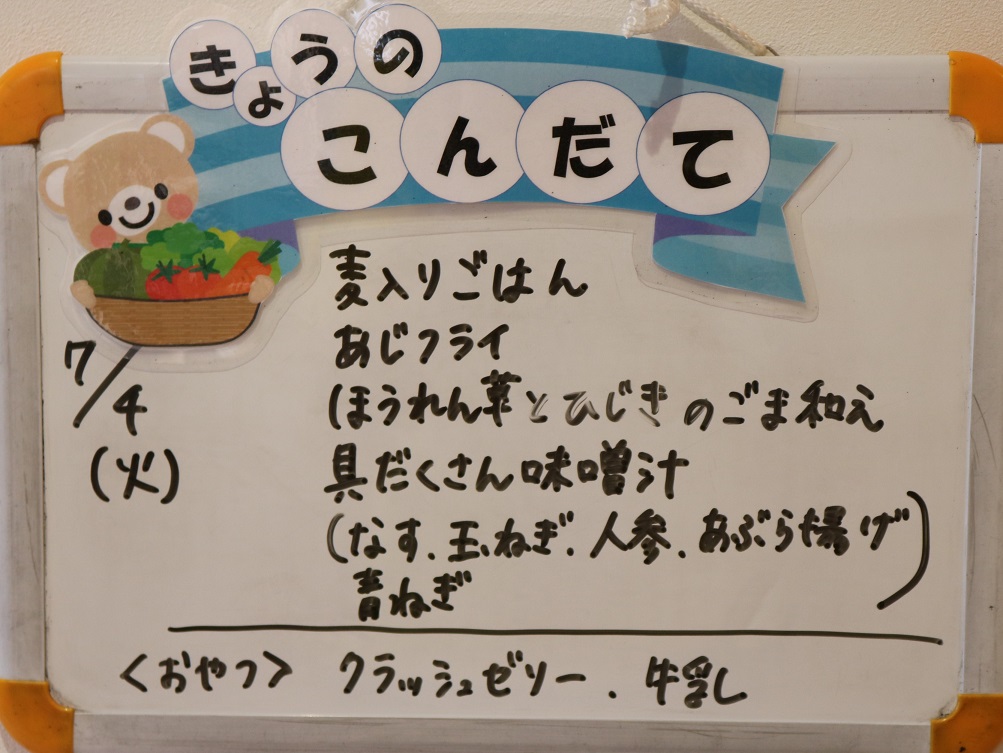 きょうの
こんだて
麦入りごはん
あじフライ
7/4
ほうれん草とひじきのごま和え
(火)
具だくさん味噌汁
(なす、玉ねぎ、人参、あぶら揚げ
青ねぎ)
<おやつ> クラッシュゼリー、牛乳